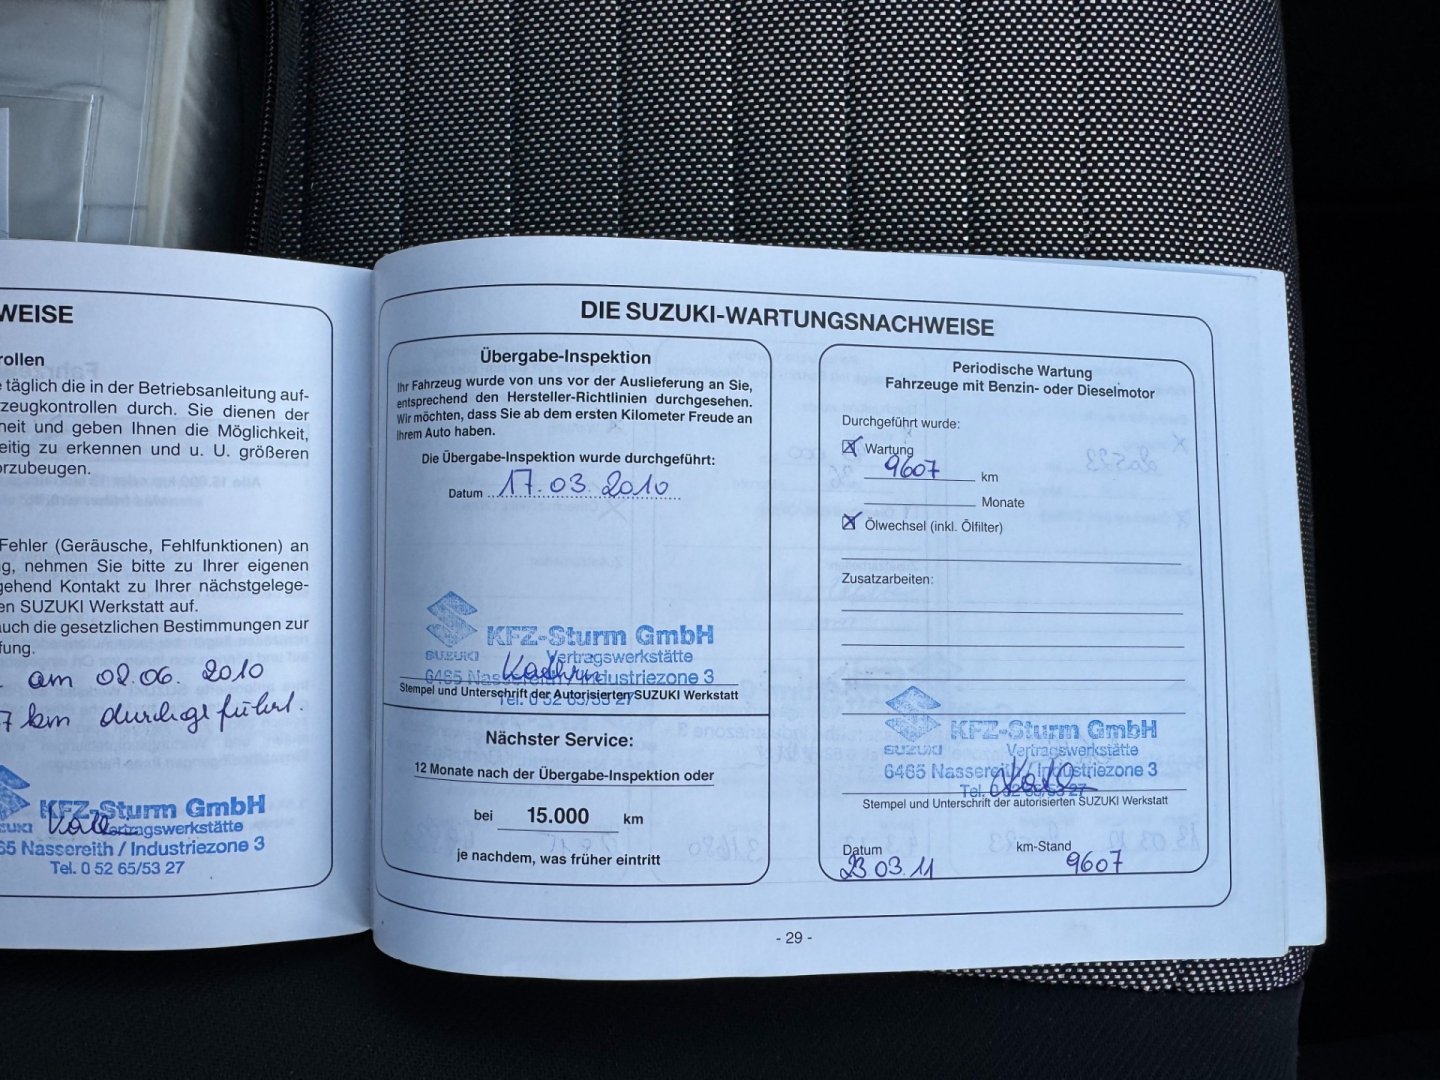 WEISE
rollen
e täglich die in der Betriebsanleitung auf-
zeugkontrollen durch. Sie dienen der
heit und geben Ihnen die Möglichkeit,
eitig zu erkennen und u. U. größeren
orzubeugen.
Fehler (Geräusche, Fehlfunktionen) an
g, nehmen Sie bitte zu Ihrer eigenen
gehend Kontakt zu Ihrer nächstgelege-
en SUZUKI Werkstatt auf.
auch die gesetzlichen Bestimmungen zur
fung.
am 02.06. 2010
7 km durchgeführt.
KFZ-Sturm GmbH
UZUKI Vertragswerkstätte
65 Nassereith / Industriezone 3
Tel. 0 52 65/53 27
DIE SUZUKI-WARTUNGSNACHWEISE
Übergabe-Inspektion
Ihr Fahrzeug wurde von uns vor der Auslieferung an Sie,
entsprechend den Hersteller-Richtlinien durchgesehen.
Wir möchten, dass Sie ab dem ersten Kilometer Freude an
Ihrem Auto haben.
Die Übergabe-Inspektion wurde durchgeführt:
Datum 17.03.2010
KFZ-Sturm GmbH
SUZUKI Vertragswerkstätte
6465 Nassereith / Industriezone 3
Stempel und Unterschrift der Autorisierten SUZUKI Werkstatt
Tel. 0 52 65/53 27
Nächster Service:
12 Monate nach der Übergabe-Inspektion oder
bei 15.000 km
je nachdem, was früher eintritt
Periodische Wartung
Fahrzeuge mit Benzin- oder Dieselmotor
Durchgeführt wurde:
Wartung
9607 km
Monate
Ölwechsel (inkl. Ölfilter)
Zusatzarbeiten:
KFZ-Sturm GmbH
SUZUKI Vertragswerkstätte
6465 Nassereith / Industriezone 3
Tel. 0 52 65/53 27
Stempel und Unterschrift der autorisierten SUZUKI Werkstatt
Datum km-Stand
23.03.11 9607
- 29 -